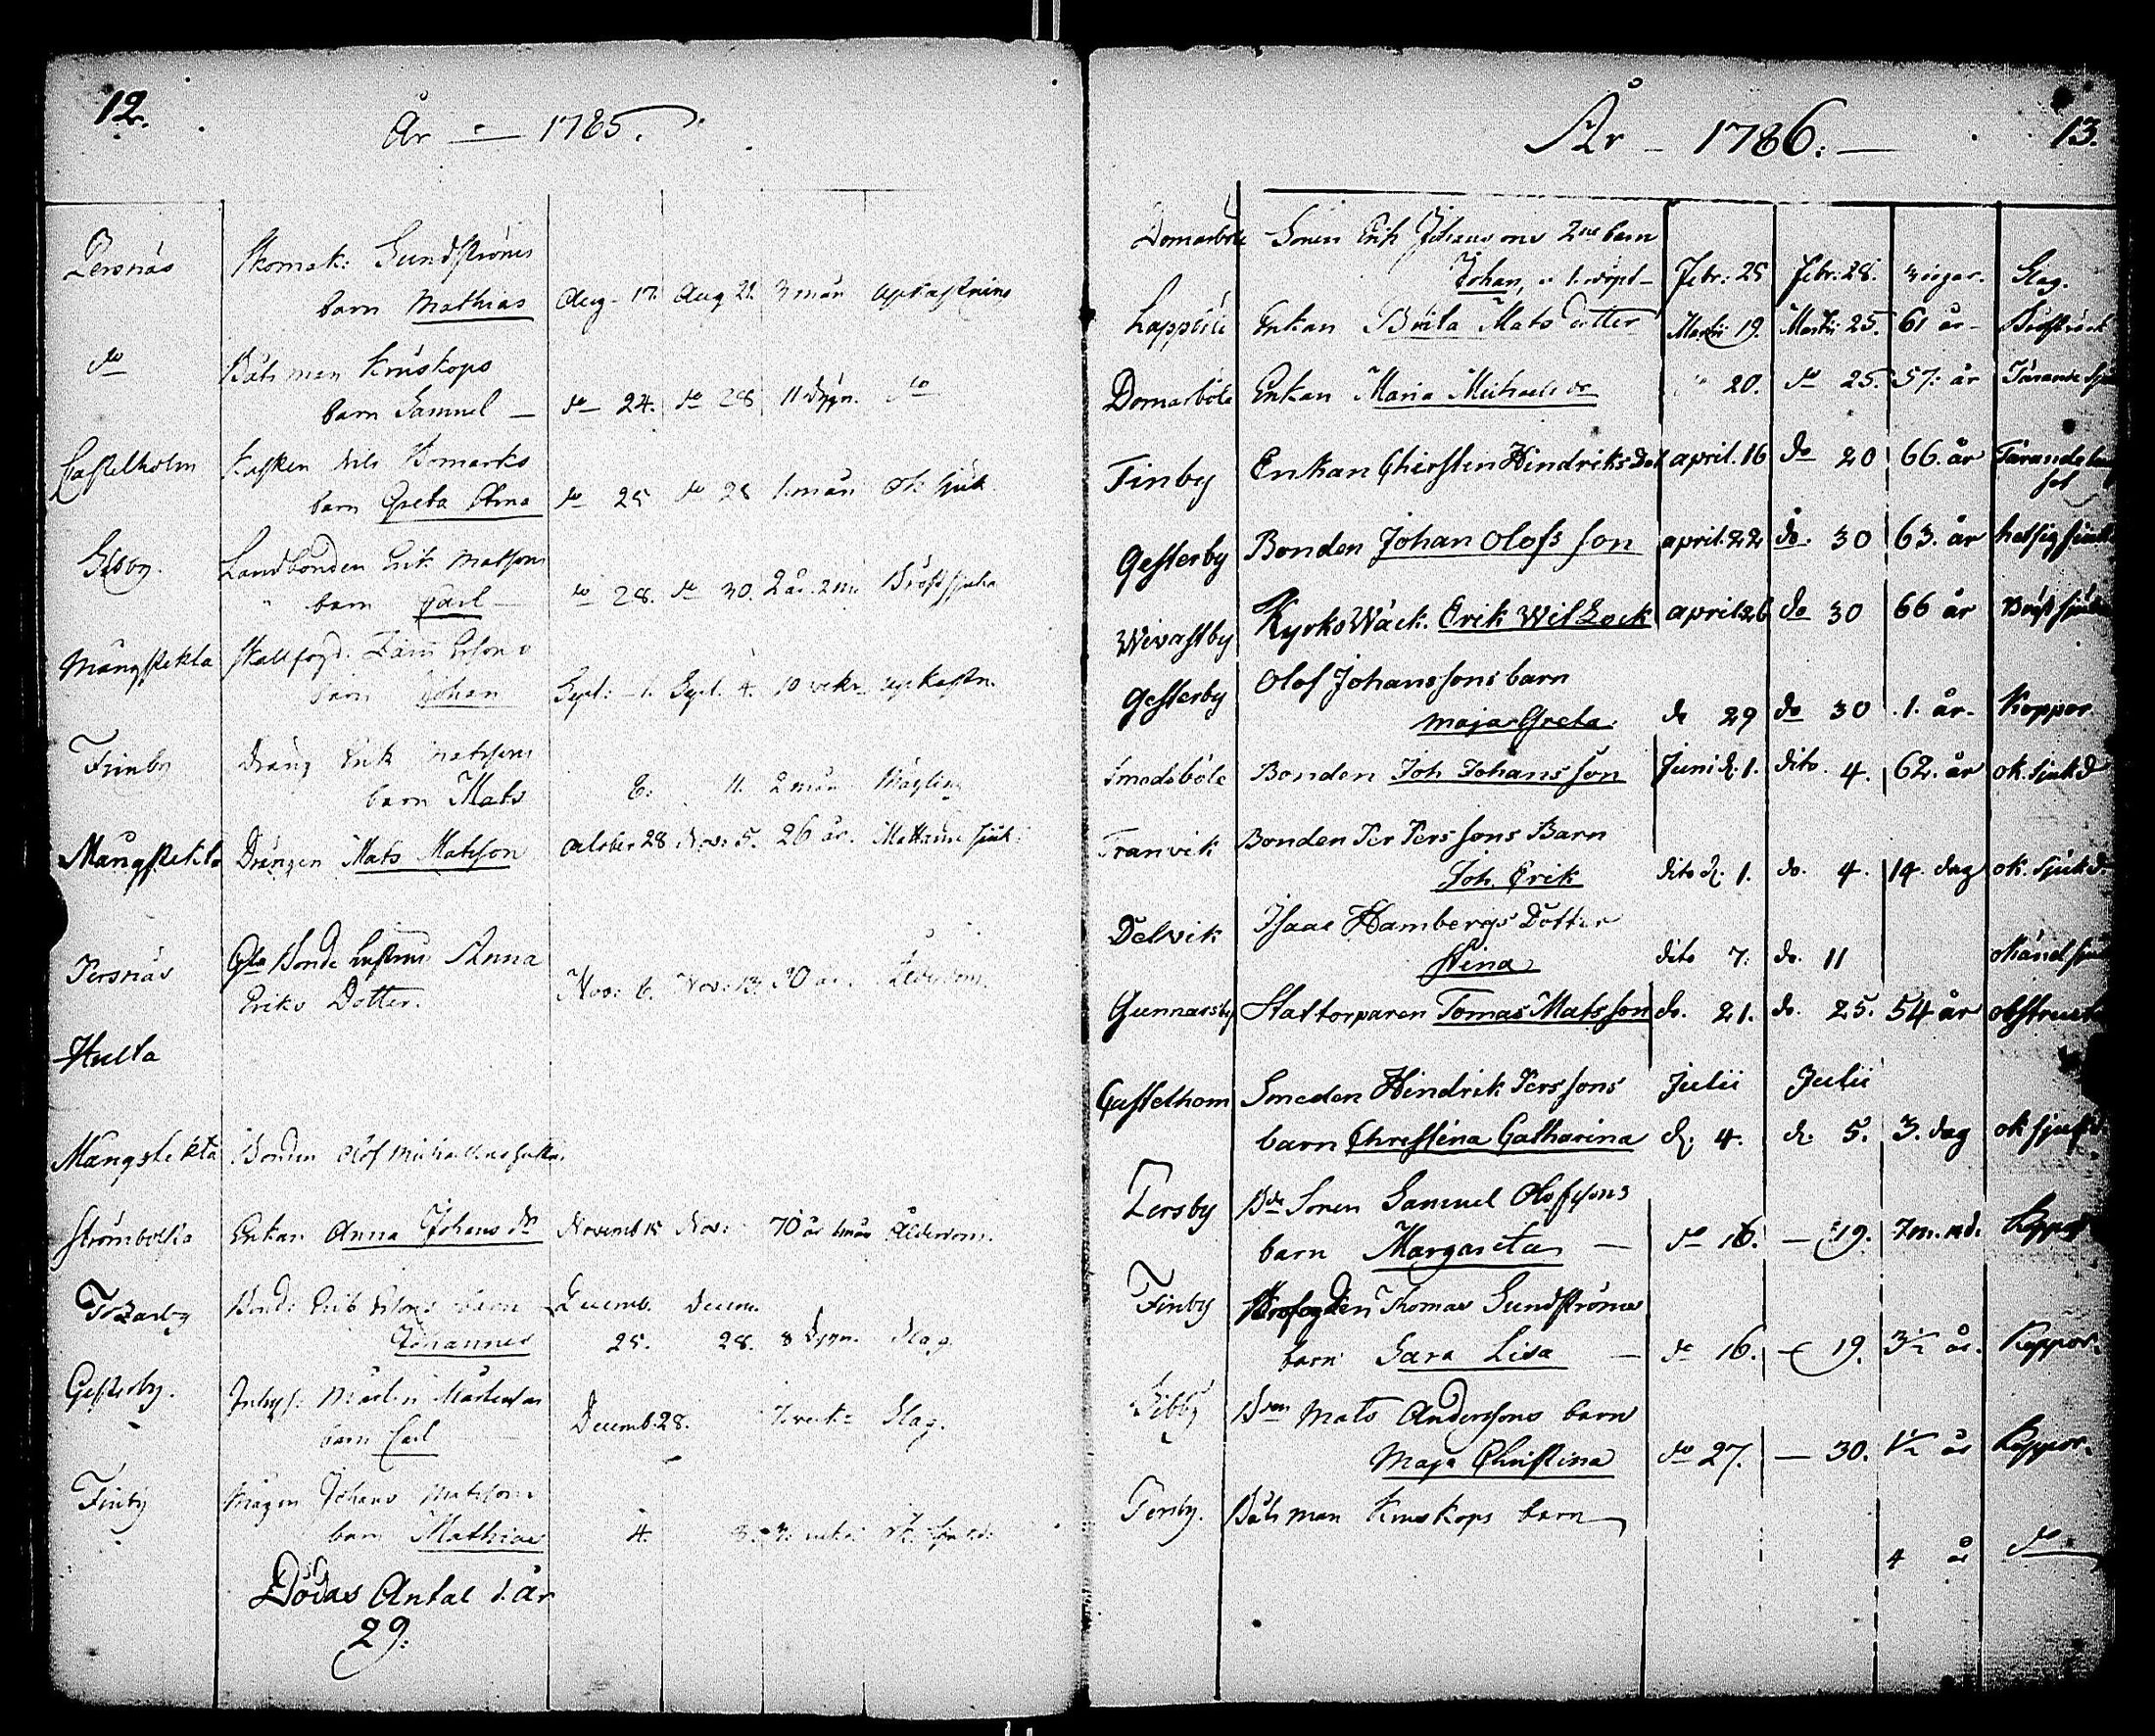 12.
År - 1785.
Persnäs Skomak: Sundströms
barn Mathias Aug - 17. Aug 21. 3 mån Upkastning
do Båtsman Kruskops
barn Samuel - do 24. do 28 11 dygn. do
Castelholm Kusken Nils Komarks
barn Greta Stina do 25 do 28 1. mån ok. Sjuk.
Sibby. Landbonden Erik Matsons
barn Carl do 28. do 30. 2 år. 2 m. Bröstsjuka
Mångstekta
barn Johan Sept: 1. Sept. 4. 10 vekr. upkastn.
Finby Dräng Erik Matssons
barn Mats 8. 11. 2 mån
Mångstekta Drängen Mats Matsson October 28 Nov: 5. 26 år.
Persnäs Gla Bonde Anna
Eriks Dotter. Nov: 6. Nov: 13. Ålderdom.
Hulta
Mångstekta Bonden Olof
Strömbolsta Enkan Anna Johans dr Novemb 15 Nov: 70 år Ålderdom.
Bond: Erik barn Decemb. Decem.
Johannes 25. 28. 8 Dygn. Slag.
Gesterby. Inhys: Mårten
barn Carl Decemb. 28. 7. vek: Slag.
Finby Mågen Johans Matssons
barn Mathias 4.
Dödas Antal i. år
29.
År - 1786. - 13.
Domarböle Sonen Erik Johanssons 2ne barn
Johan, o 1. döpt - Febr: 25 Febr: 28. Slag.
Enkan Brita Mats dotter Martii 19. Martii 25. 61 år -
Domarböle Enkan Maria Michaels dr 20. do 25. 57. år Tärande
Finby Enkan Chirstin Hindriks dot april. 16 do 20 66. år Tärande
Gesterby Bonden Johan Olofs son april. 22 do. 30 63. år hetsig sjuk
Wivastby Kyrko Wäck. Erik WilLock april 26 do 30 66 år Bröst sjuk
Gesterby Olof Johanssons barn
Maja Greta. do 29 do 30 1. år. Koppor.
Smedsböle Bonden Joh Johans son Juni d. 1. dito 4. 62. år ok. sjukd
Tranvik Bonden Per Pers sons Barn
Joh. Erik dito d. 1. do. 4. 14. dag ok. sjukd.
Delvik Isaac Hambergs Dotter
Stina dito 7. do. 11
Gunnarsby Stattorparen Tomas Mats son do. 21. do. 25. 54 år obstruct
Castelhom Smeden Hindrik Pers sons Julii Julii
barn Christina Catharina d. 4. d. 5. 3. dag ok sjukd.
Persby Bde Sonen Samuel Olofssons
barn Margareta - do 16. - 19. Koppor
Finby Krofogden Thomas Sundströms
barn Sara Lisa - do 16. - 19. 3½ år. Koppor.
Sibby Bden Mats Anderssons barn
Maja Christina do 27. - 30. 1½ år Koppor.
Persby. Båtsman Kruskops barn
4 år do